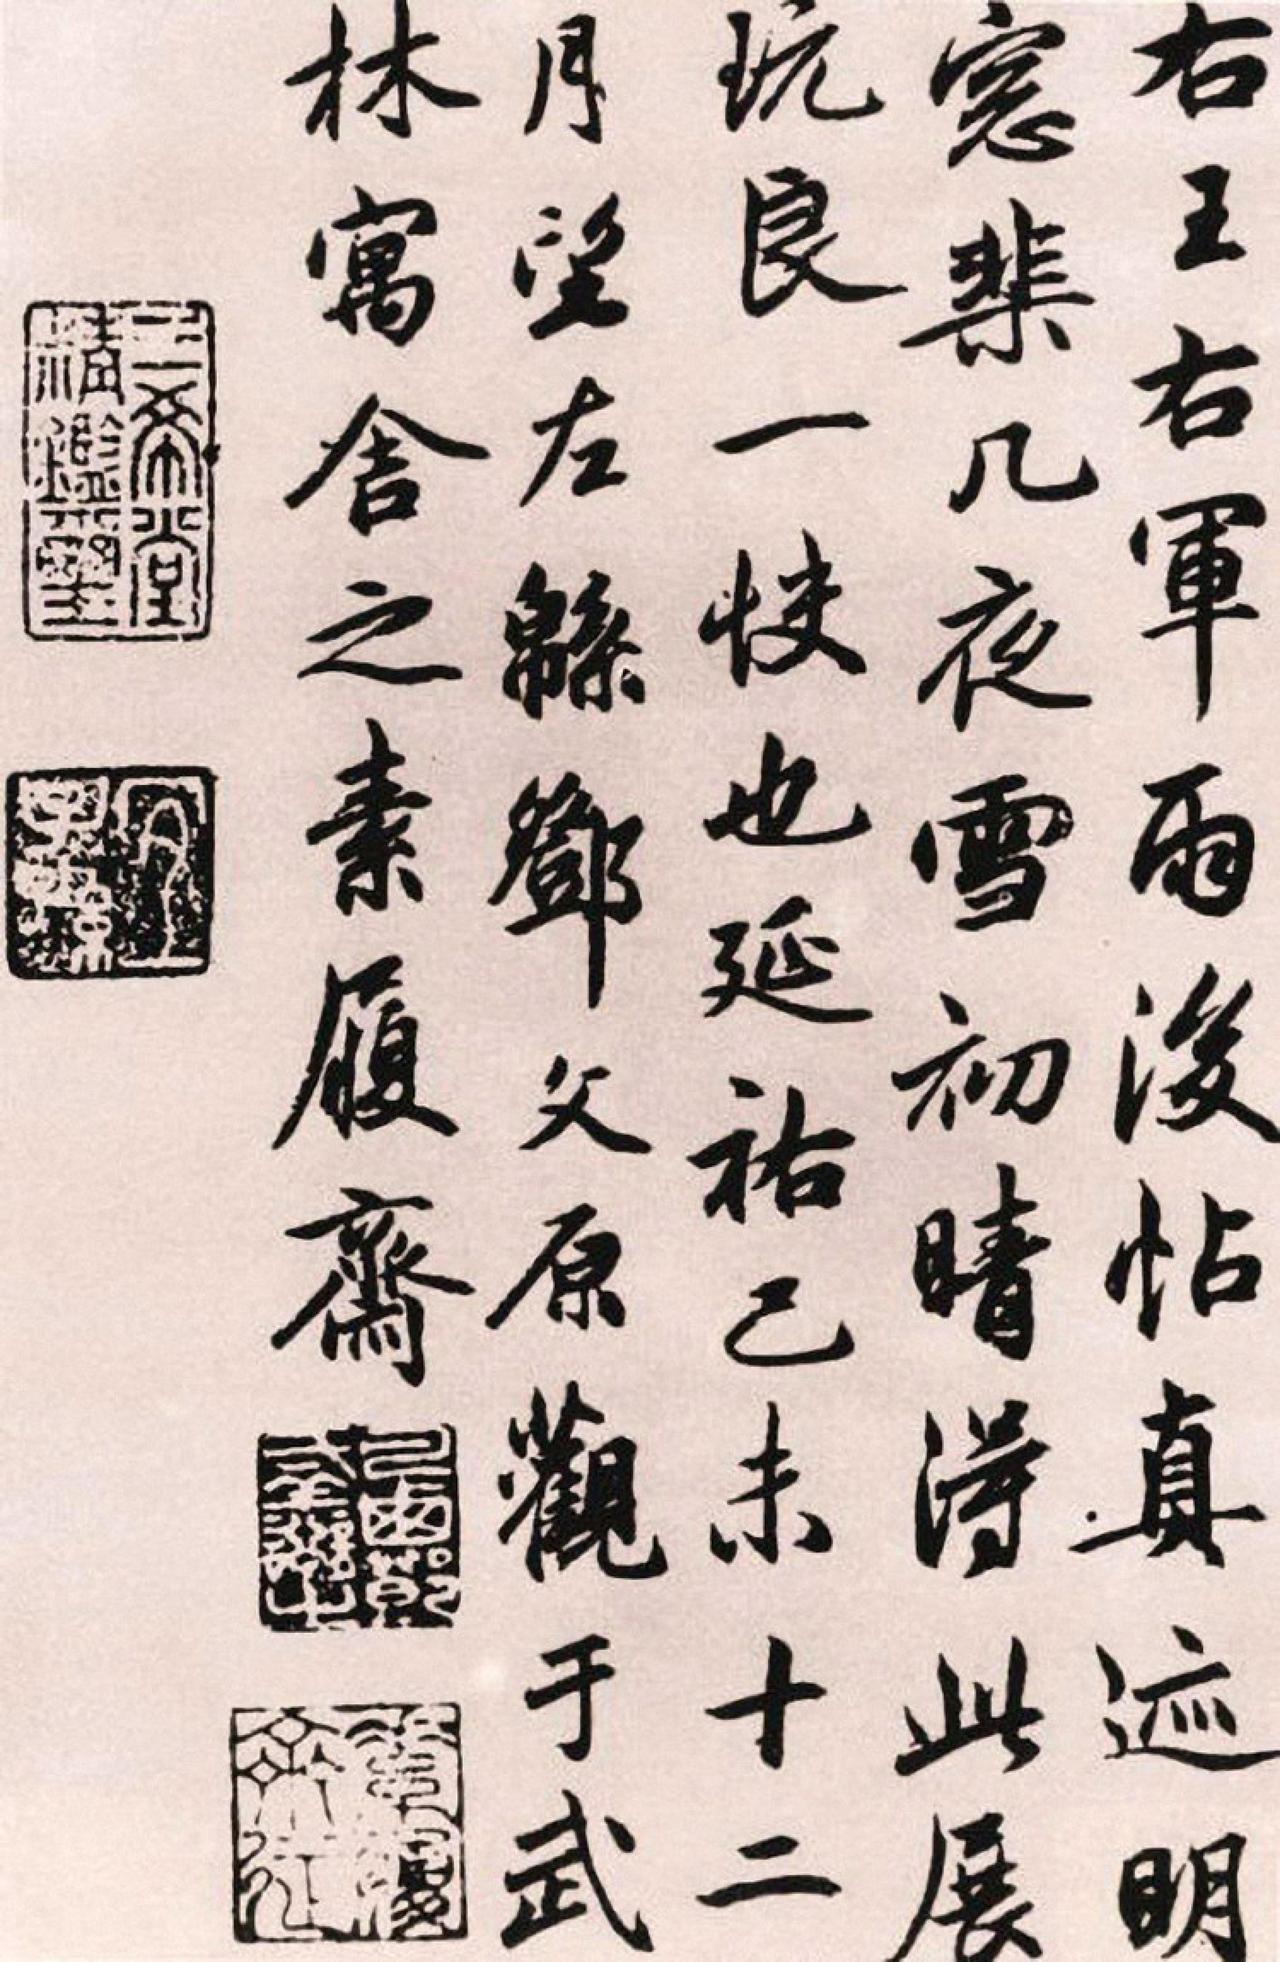 右王右軍雨後帖真迹明
窓棐几夜雪初晴得此展
玩良一快也延祐己未十二
月望左緜鄧文原觀于武
林寓舍之素履齋
三希堂
精鑑璽